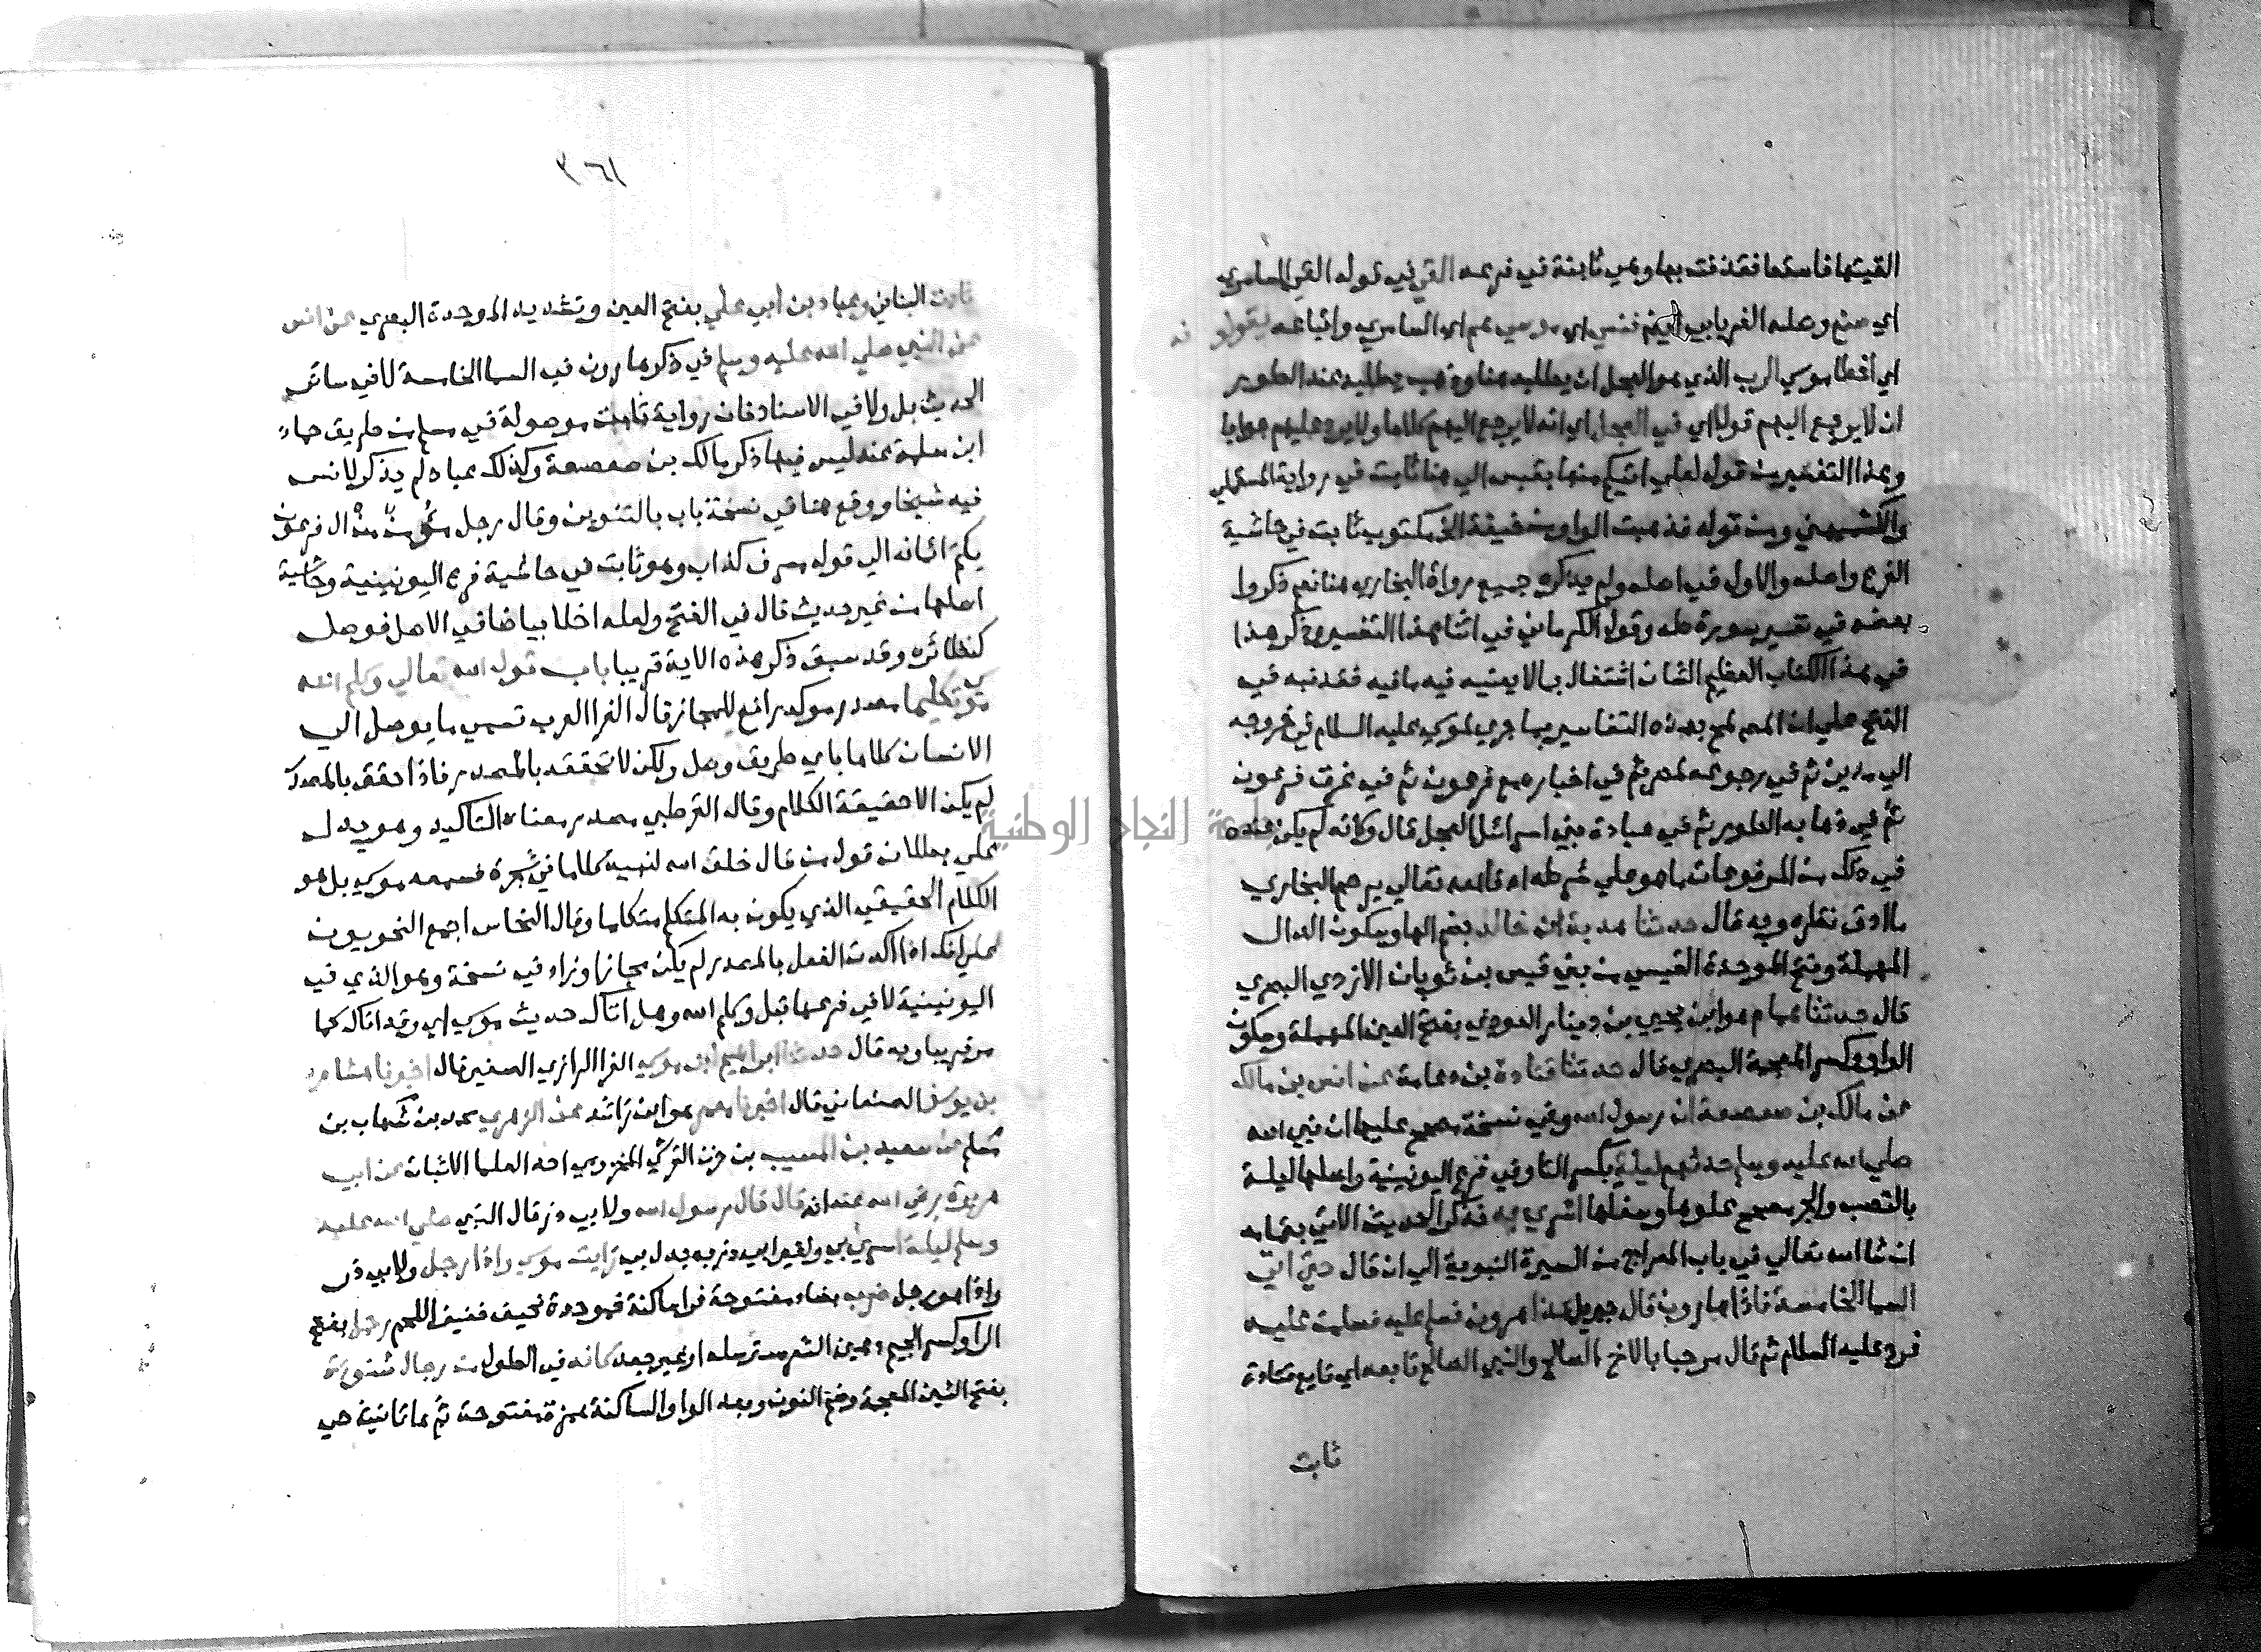 القيتها فاستعا فقذفت بها وهي ثابتة في فرعه القي في قوله القي السامري
اي صنع وصله الفريابي ايضا فنسي اي موسي هم اي السامري واتباعه يقولونه
اي اخطا موسي الرب الذي هو العجل ان يطلبه هنا وذهب يطلبه عند الطور
ان لا يرجع اليهم قولا اي في العجل اي انه لا يرجع اليهم كلاما ولا يرد عليهم جوابا
وهذا التفسير من قوله لعلي اتيكم منها بقبس الي هنا ثابت في رواية المستملي
والكشميهني ومن قوله فذهبت الواو من خيفة الخ مكتوب ثابت في حاشية
الفرع واصله والاول في اصله ولم يذكره جميع رواة البخاري هنا نعم ذكروا
بعضه في تفسير سورة طه وقول الكرماني في اثنا هذا التفسير وذكر هذا
في هذا الكتاب العظيم الشان اشتغال بما لا يعنيه فيه ما فيه فقد نبه في
الفتح علي ان المص لمح بهذه التفاسير بما جري لموسي عليه السلام في خروجه
الي مدين ثم في رجوعه لمصر ثم في اخباره مع فرعون ثم في غرق فرعون
ثم في ذهابه الي الطور ثم في عبادة بني اسرائل العجل قال وكانه لم يكن عنده
في ذلك من المرفوعات ما هو علي شرطه اه فالله تعالي يرحم البخاري
ما ادق نظره وبه قال حدثنا هدبة ابن خالد بضم الها وسكون الدال
المهملة وفتح الموحدة القيسي من بني قيس بن ثوبان الازدي البصري
قال حدثنا همام هو ابن يحيي بن دينار العوذي بفتح العين المهملة وسكون
الواو وكسر المعجمة البصري قال حدثنا قتادة بن دعامة عن انس بن مالك
عن مالك بن صعصعة ان رسول الله وفي نسخة مصحح عليها ان نبي الله
صلي الله عليه وسلم حدثهم ليلة بكسر التا وفي فرع اليونينية واصلها ليلة
بالنصب والجر مصحح علوها وسفلها اسري به فذكر الحديث الاتي بتمامه
ان شا الله تعالي في باب المعراج من السيرة النبوية الي ان قال حتي اتي
السما الخامسة فاذا هارون قال جبريل هذا هرون فسلم عليه فسلمت عليه
فرد عليه السلام ثم قال مرحبا بالاخ الصالح والنبي الصالح تابعه اي تابع قتادة
ثابت
٣٦١
ثابت البناني وعباد بن ابي علي بفتح العين وتشديد الموحدة البصري عن انس
عن النبي صلي الله عليه وسلم في ذكر هارون في السما الخامسة لا في سائر
الحديث بل ولا في الاسناد فان رواية ثابت موصولة في مسلم من طريق حماد
ابن سلمة عنه ليس فيها ذكر مالك بن صعصعة وكذلك عباد لم يذكر لانس
فيه شيخا ووقع هنا في نسخة باب بالتنوين وقال رجل مؤمن من ال فرعون
يكتم ايمانه الي قوله مسرف كذاب وهو ثابت في حاشية فرع اليونينية وحاشية
اصلها من غير حديث قال في الفتح ولعله اخلا بياضا في الاصل فوصل
كنظائره وقد سبق ذكر هذه الاية قريبا باب قول الله تعالي وكلم الله
موسي تكليما مصدر موكد رافع للمجاز قال الفرا العرب تسمي ما يوصل الي
الانسان كلاما باي طريق وصل ولكن لا تحققه بالمصدر فاذا حقق بالمصدر
لم يكن الا حقيقة الكلام وقال القرطبي مصدر معناه التاكيد وهو يدل
علي بطلان قول من قال خلق الله لنفسه كلاما في شجرة فسمعه موسي بل هو
الكلام الحقيقي الذي يكون به المتكلم متكلما وقال النحاس اجمع النحويون
علي انك اذا اكدت الفعل بالمصدر لم يكن مجازا وزاد فيه نسخة وهو الذي في
اليونينية لا في فرعها قبل وكلم الله وهل اتاك حديث موسي اي وقد اتاك كما
مر قريبا وبه قال حدثنا ابراهيم ابن موسي الفرا الرازي الصغير قال اخبرنا هشام
بن يوسف الصنعاني قال اخبرنا معمر هو ابن راشد عن الزهري محمد بن شهاب بن
مسلم عن سعيد بن المسيب بن حزن القرشي المخزومي احد العلما الاثبات عن ابي
هريرة رضي الله عنه انه قال قال رسول الله ولابي ذر قال النبي صلي الله عليه
وسلم ليلة اسري بي ولغير ابي ذر به بدل بي رايت موسي واذا رجل ولابي ذر
واذا هو رجل ضرب بضاد مفتوحة فرا ساكنة فموحدة نحيف خفيف اللحم رجل بفتح
الرا وكسر الجيم دهين الشعر مسترسله او غير جعد كانه في الطول من رجال شنوءة
بفتح الشين المعجمة وضم النون وبعد الواو الساكنة همزة مفتوحة ثم ها تانيث حي
جامعة النجاح الوطنية